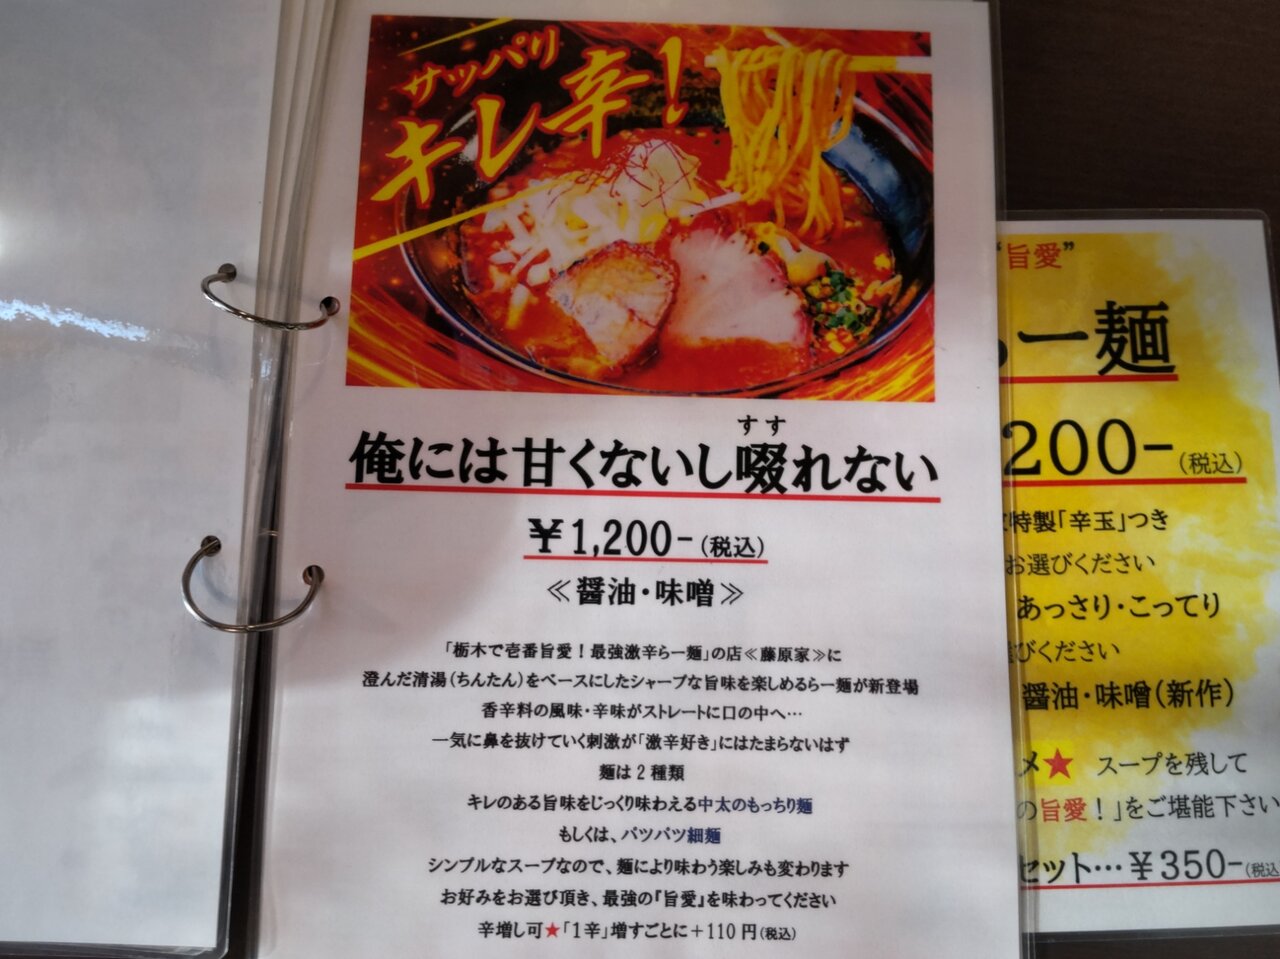 サッパリ
キレ辛！
俺には甘くないし啜れない
すす
￥1,200-(税込)
≪醤油・味噌≫
「栃木で壱番旨愛！最強激辛らー麺」の店≪藤原家≫に
澄んだ清湯(ちんたん)をベースにしたシャープな旨味を楽しめるらー麺が新登場
香辛料の風味・辛味がストレートに口の中へ…
一気に鼻を抜けていく刺激が「激辛好き」にはたまらないはず
麺は2種類
キレのある旨味をじっくり味わえる中太のもっちり麺
もしくは、パツパツ細麺
シンプルなスープなので、麺により味わう楽しみも変わります
お好みをお選び頂き、最強の『旨愛』を味わってください
辛増し可★「1辛」増すごとに＋110円(税込)
“旨愛”
ー麺
200-(税込)
特製「辛玉」つき
お選びください
あっさり・こってり
びください
醤油・味噌(新作)
メ★ スープを残して
の旨愛！」をご堪能下さい
セット…￥350-(税込